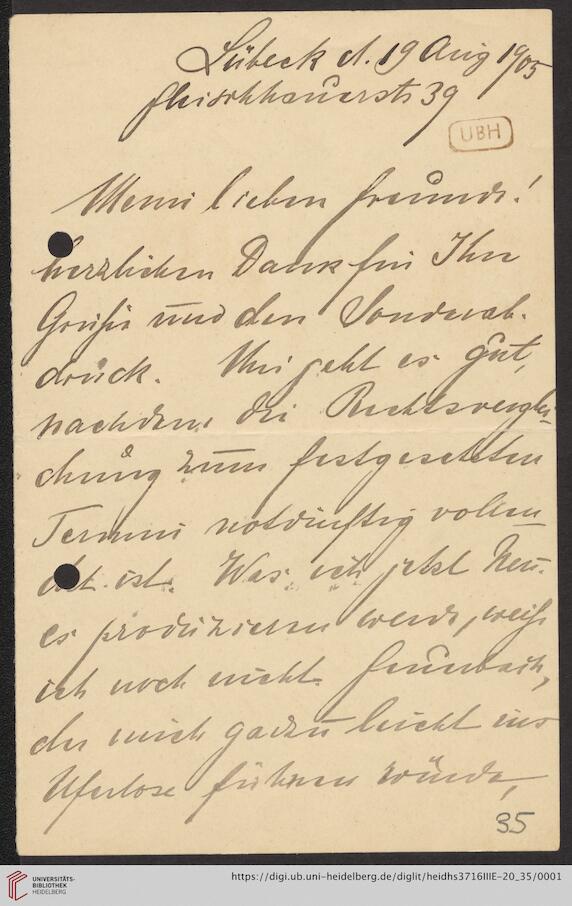 Lübeck d. 19 Aug 1905
Fleischhauerstr 39
UBH
Meine lieben Freunde!
herzlichen Dank für Ihre
Grüße und den Sonderab-
druck. Mir geht es gut,
nachdem die Rechtsverglei-
chung zum festgesetzten
Termin notdürftig vollen-
det ist. Was ich jetzt Neu-
es produzieren werde, weiß
ich noch nicht. Feuerbach,
der mich gar zu leicht ins
Uferlose führen würde,
35
UNIVERSITÄTS-
BIBLIOTHEK
HEIDELBERG
https://digi.ub.uni-heidelberg.de/diglit/heidhs3716IIIE-20_35/0001